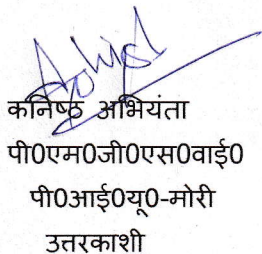 कनिष्ठ अभियंता
पी0एम0जी0एस0वाई0
पी0आई0यू0-मोरी
उत्तरकाशी